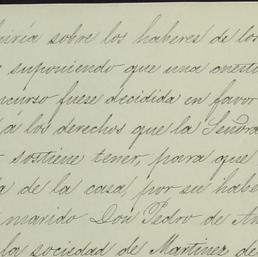 sobre los haberes de los
suponiendo que una cuesti
ncurso fuese decidida en favor
á los derechos que la Señora
sostiene tener, para que
a de la casa por su habe
marido Don Pedro de
la sociedad de Martinez de